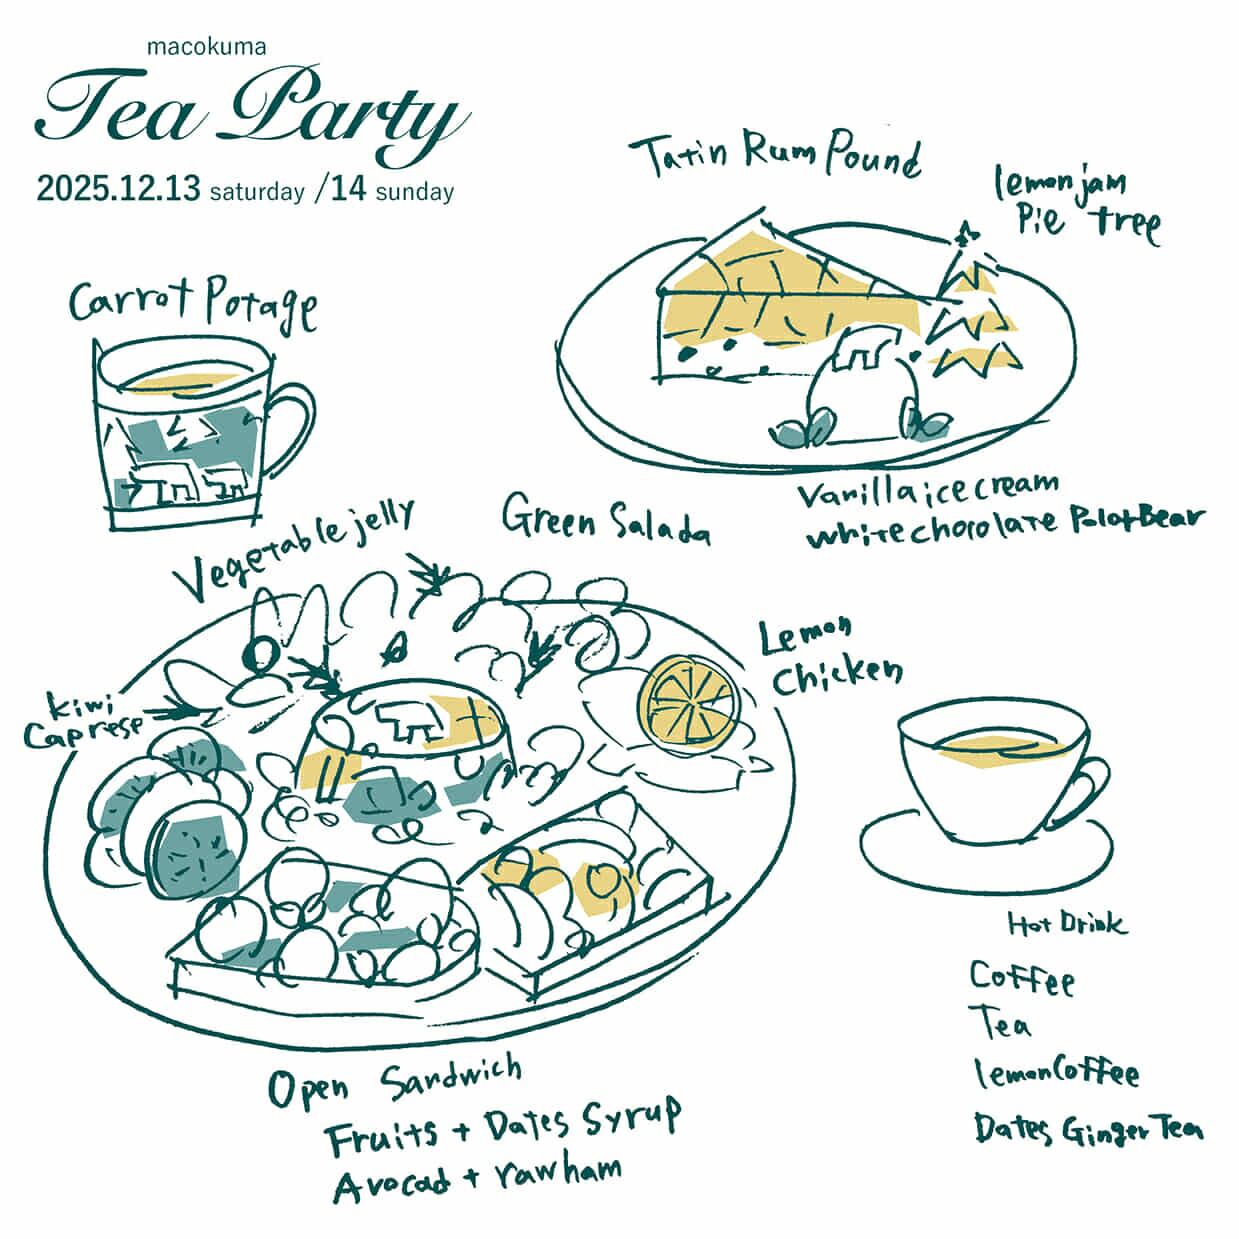 macokuma
Tea Party
2025.12.13 saturday /14 sunday
Tatin Rum Pound
lemon jam
Pie tree
Carrot Potage
Vanilla ice cream
white chocolate PolarBear
Vegetable jelly
Green Salada
Lemon
Chicken
kiwi
Caprese
Hot Drink
Coffee
Tea
lemon Coffee
Dates Ginger Tea
Open Sandwich
Fruits + Dates Syrup
Avocad + rawham